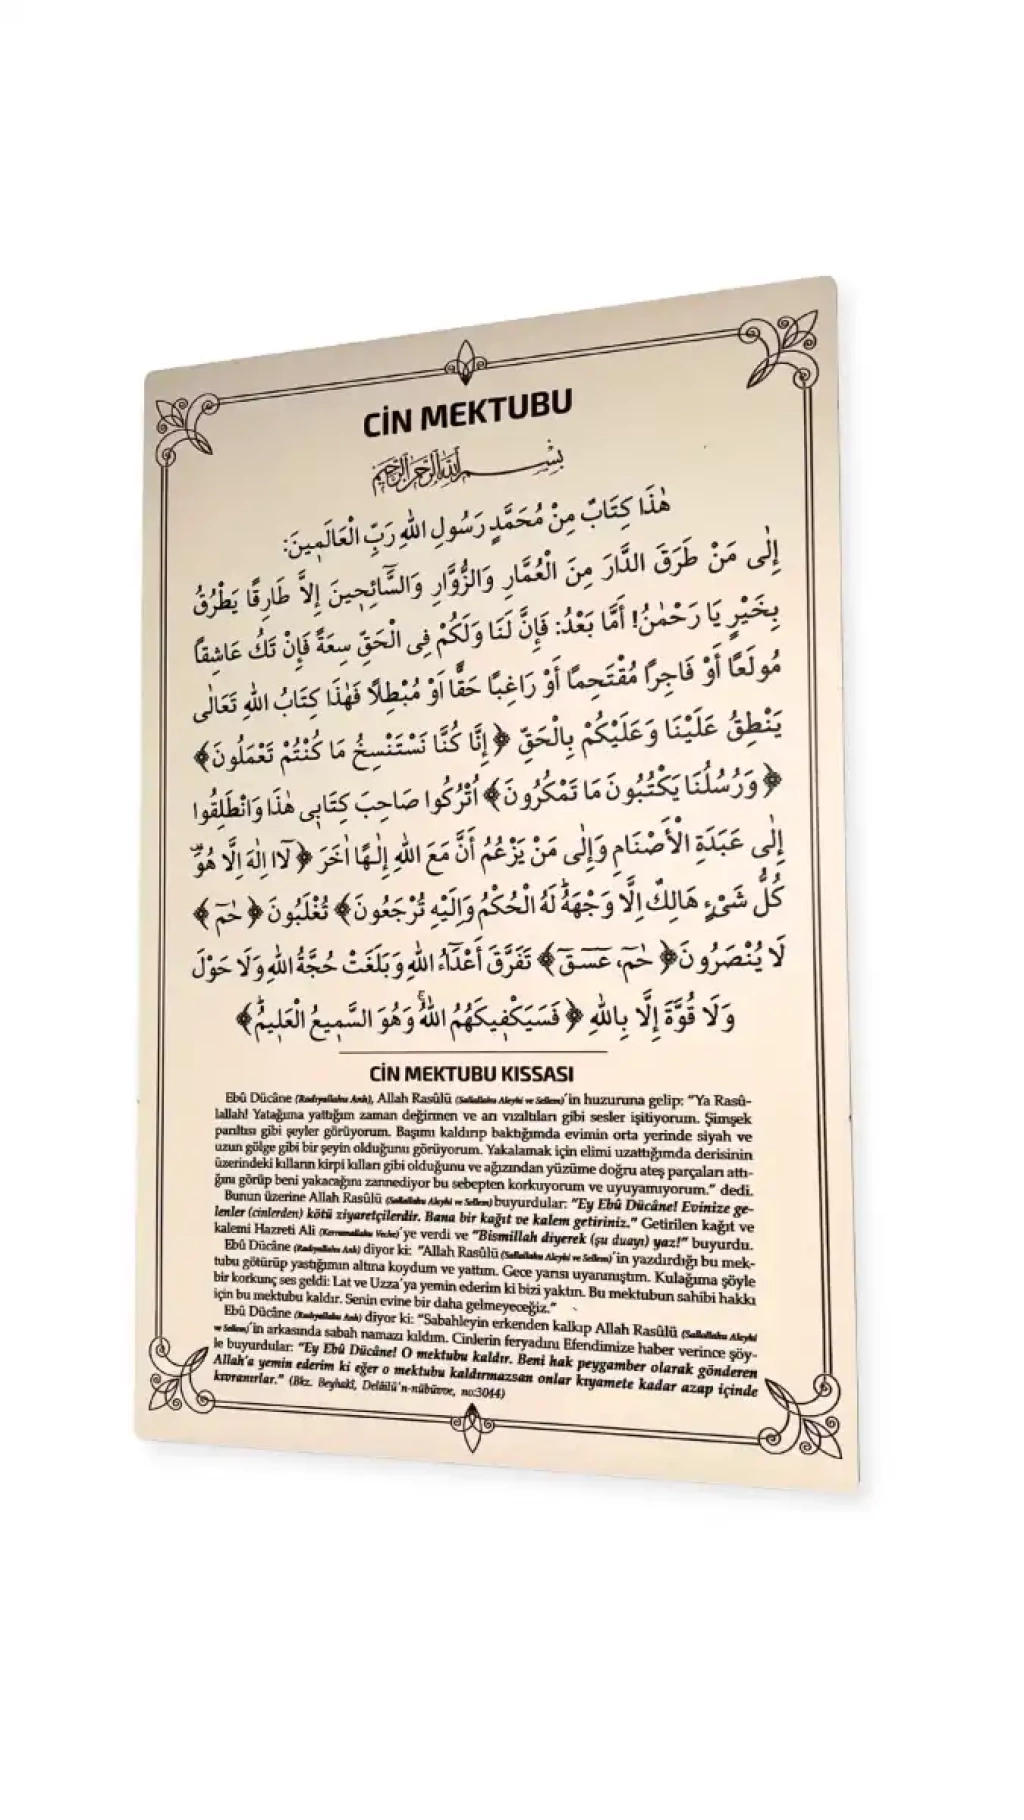 CİN MEKTUBU
بِسْمِ اللهِ الرَّحْمٰنِ الرَّحِيمِ
هٰذَا كِتَابٌ مِنْ مُحَمَّدٍ رَسُولِ اللهِ رَبِّ الْعَالَمِينَ:
إِلٰى مَنْ طَرَقَ الدَّارَ مِنَ الْعُمَّارِ وَالزُّوَّارِ وَالسَّائِحِينَ إِلاَّ طَارِقًا يَطْرُقُ
بِخَيْرٍ يَا رَحْمٰنُ! أَمَّا بَعْدُ: فَإِنَّ لَنَا وَلَكُمْ فِى الْحَقِّ سِعَةً فَإِنْ تَكُ عَاشِقاً
مُولَعًا أَوْ فَاجِراً مُقْتَحِمًا أَوْ رَاغِباً حَقًّا أَوْ مُبْطِلًا فَهٰذَا كِتَابُ اللهِ تَعَالٰى
يَنْطِقُ عَلَيْنَا وَعَلَيْكُمْ بِالْحَقِّ ﴿إِنَّا كُنَّا نَسْتَنْسِخُ مَا كُنْتُمْ تَعْمَلُونَ﴾
﴿وَرُسُلُنَا يَكْتُبُونَ مَا تَمْكُرُونَ﴾ اُتْرُكُوا صَاحِبَ كِتَابِى هٰذَا وَانْطَلِقُوا
إِلٰى عَبَدَةِ الْأَصْنَامِ وَإِلٰى مَنْ يَزْعُمُ أَنَّ مَعَ اللهِ إِلٰهًا اٰخَرَ ﴿لَآ اِلٰهَ اِلَّا هُوَۜ
كُلُّ شَىْءٍ هَالِكٌ اِلَّا وَجْهَهُۜ لَهُ الْحُكْمُ وَاِلَيْهِ تُرْجَعُونَ﴾ تُغْلَبُونَ ﴿حٰمٓ﴾
لَا يُنْصَرُونَ ﴿حٰمٓ، عٓسٓقٓ﴾ تَفَرَّقَ أَعْدَٓاءُ اللهِ وَبَلَغَتْ حُجَّةُ اللهِ وَلَا حَوْلَ
وَلَا قُوَّةَ إِلَّا بِاللهِ ﴿فَسَيَكْفِيكَهُمُ اللهُۚ وَهُوَ السَّمِيعُ الْعَلِيمُۜ﴾
CİN MEKTUBU KISSASI
Ebû Dücâne (Radıyallahu Anh), Allah Rasûlü (Sallallahu Aleyhi ve Sellem)'in huzuruna gelip: "Ya Rasû-
lallah! Yatağıma yattığım zaman değirmen ve arı vızıltıları gibi sesler işitiyorum. Şimşek
parıltısı gibi şeyler görüyorum. Başımı kaldırıp baktığımda evimin orta yerinde siyah ve
uzun gölge gibi bir şeyin olduğunu görüyorum. Yakalamak için elimi uzattığımda derisinin
üzerindeki kılların kirpi kılları gibi olduğunu ve ağızından yüzüme doğru ateş parçaları attı-
ğını görüp beni yakacağını zannediyor bu sebepten korkuyorum ve uyuyamıyorum." dedi.
Bunun üzerine Allah Rasûlü (Sallallahu Aleyhi ve Sellem) buyurdular: "Ey Ebû Dücâne! Evinize ge-
lenler (cinlerden) kötü ziyaretçilerdir. Bana bir kağıt ve kalem getiriniz." Getirilen kağıt ve
kalemi Hazreti Ali (Kerramallahu Veche)'ye verdi ve "Bismillah diyerek (şu duayı) yaz!" buyurdu.
Ebû Dücâne (Radıyallahu Anh) diyor ki: "Allah Rasûlü (Sallallahu Aleyhi ve Sellem)'in yazdırdığı bu mek-
tubu götürüp yastığımın altına koydum ve yattım. Gece yarısı uyanmıştım. Kulağıma şöyle
bir korkunç ses geldi: Lat ve Uzza'ya yemin ederim ki bizi yaktın. Bu mektubun sahibi hakkı
için bu mektubu kaldır. Senin evine bir daha gelmeyeceğiz."
Ebû Dücâne (Radıyallahu Anh) diyor ki: "Sabahleyin erkenden kalkıp Allah Rasûlü (Sallallahu Aleyhi
ve Sellem)'in arkasında sabah namazı kıldım. Cinlerin feryadını Efendimize haber verince şöy-
le buyurdular: "Ey Ebû Dücâne! O mektubu kaldır. Beni hak peygamber olarak gönderen
Allah'a yemin ederim ki eğer o mektubu kaldırmazsan onlar kıyamete kadar azap içinde
kıvranırlar." (Bkz. Beyhakî, Delâilü'n-nübüvve, no:3044)